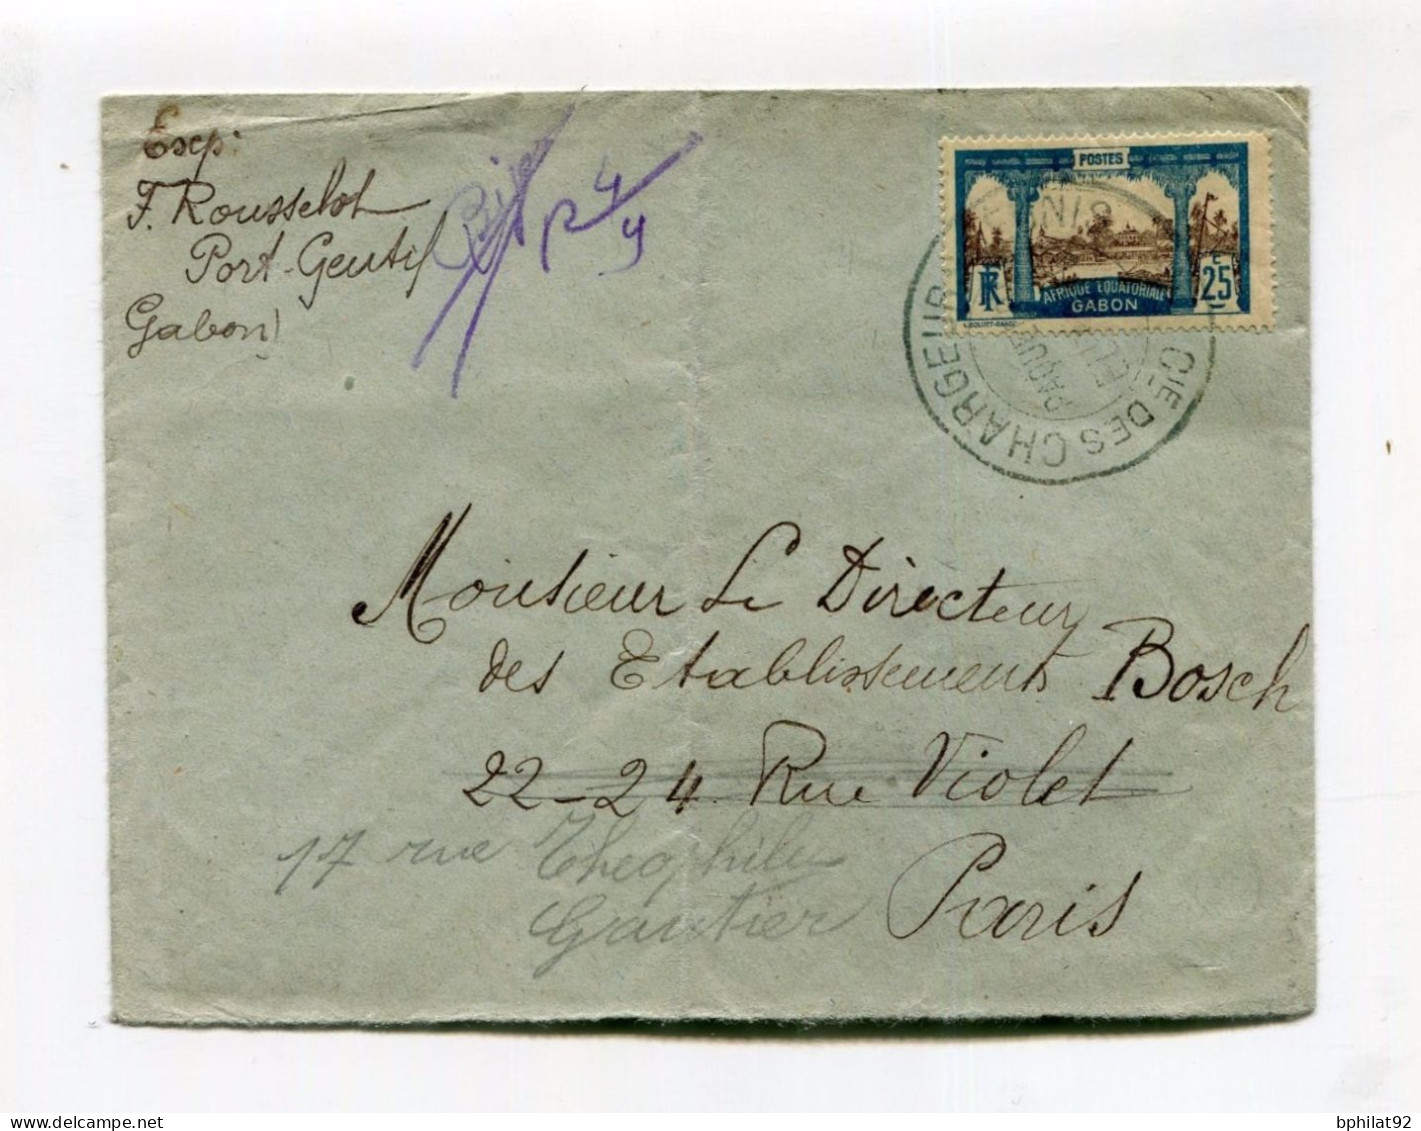 Exp:
F. Rousselot
Port-Gentil
Gabon)
R 4/4
POSTES
RF
AFRIQUE EQUATORIALE
GABON
25
Cie DES CHARGEUR
NIS
PAQUE
Monsieur Le Directeur
des Etablissements Bosch
22-24 Rue Violet
17 rue Théophile
Gautier
Paris
bphilat92